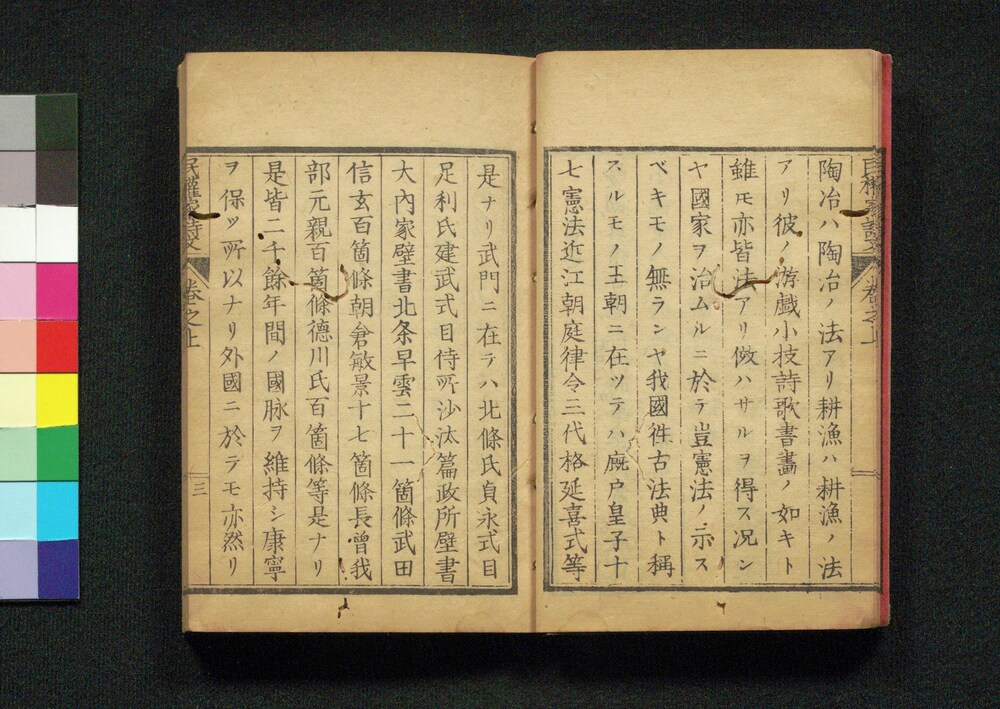 陶冶ハ陶冶ノ法アリ耕漁ハ耕漁ノ法
アリ彼ノ游戯小技詩歌書畵ノ如キト
雖モ亦皆法アリ倣ハサルヲ得ス况ン
ヤ國家ヲ治ムルニ於テ豈憲法ノ示ス
ベキモノ無ランヤ我國徃古法典ト稱
スルモノ王朝ニ在ツテハ廐戸皇子十
七憲法近江朝庭律令三代格延喜式等
是ナリ武門ニ在テハ北條氏貞永式目
足利氏建武式目侍所沙汰篇政所壁書
大內家壁書北条早雲二十一箇條武田
信玄百箇條朝倉敏景十七箇條長曾我
部元親百箇條德川氏百箇條等是ナリ
是皆二千餘年間ノ國脉ヲ維持シ康寧
ヲ保ツ所以ナリ外國ニ於テモ亦然リ
民權家詩文
卷之上
三